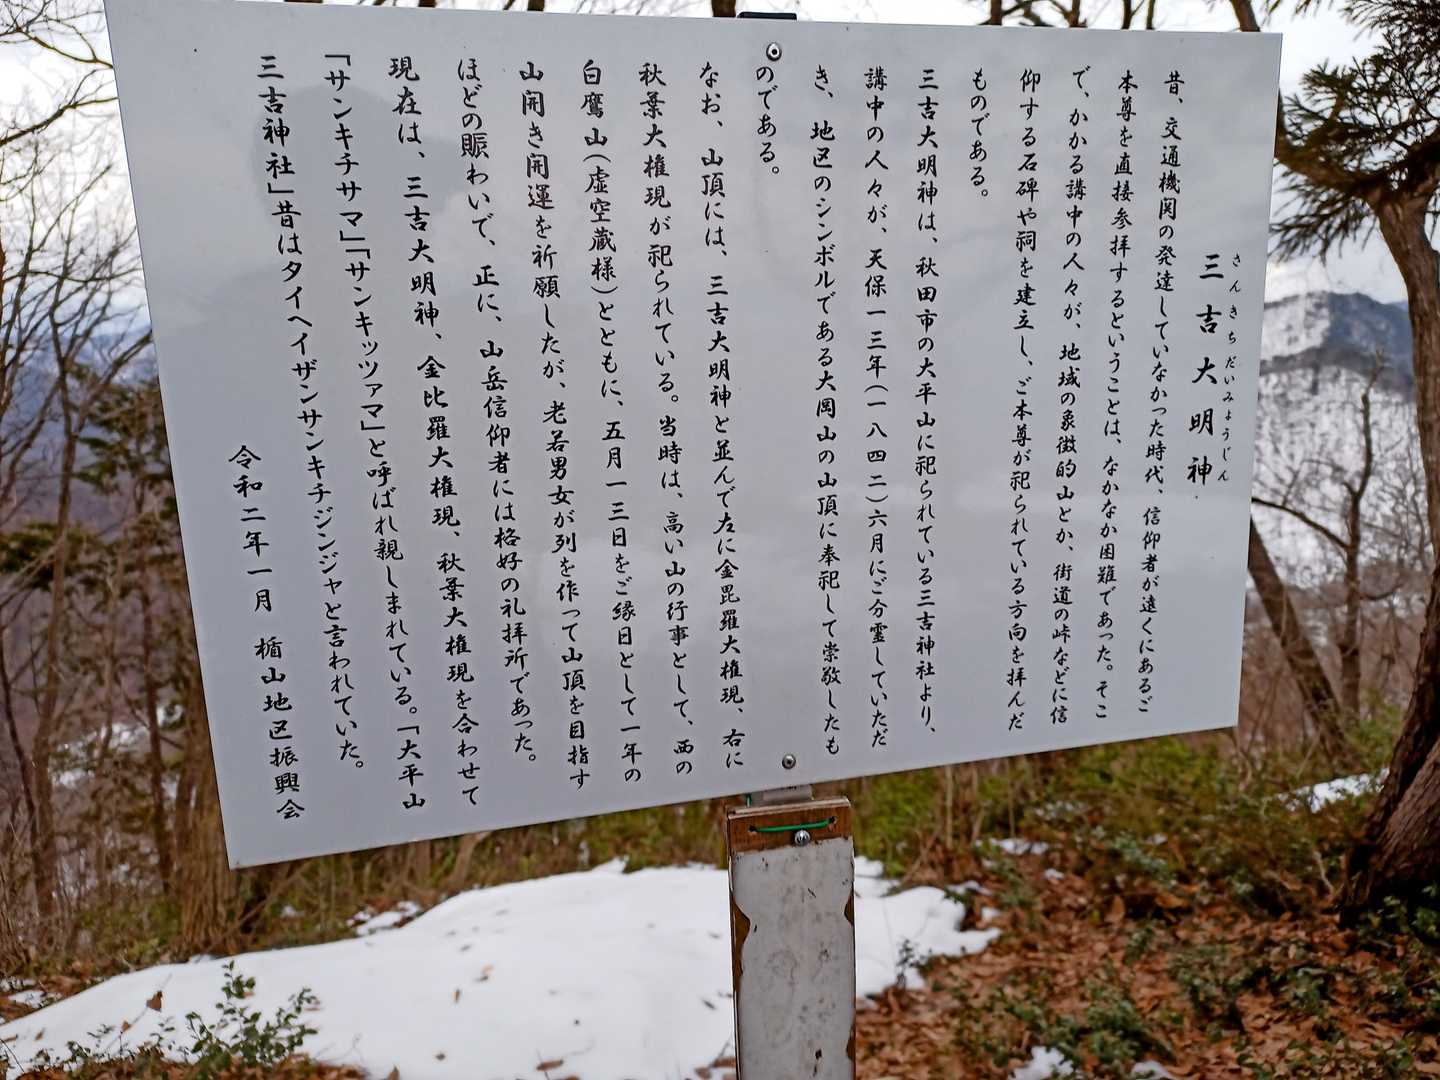 さんきちだいみょうじん
三吉大明神
昔、交通機関の発達していなかった時代、信仰者が遠くにあるご
本尊を直接参拝するということは、なかなか困難であった。そこ
で、かかる講中の人々が、地域の象徴的山とか、街道の峠などに信
仰する石碑や祠を建立し、ご本尊が祀られている方向を拝んだ
ものである。
三吉大明神は、秋田市の大平山に祀られている三吉神社より、
講中の人々が、天保一三年(一八四二)六月にご分霊していただ
き、地区のシンボルである大岡山の山頂に奉祀して崇敬したも
のである。
なお、山頂には、三吉大明神と並んで左に金毘羅大権現、右に
秋葉大権現が祀られている。当時は、高い山の行事として、西の
白鷹山(虚空蔵様)とともに、五月一三日をご縁日として一年の
山開き開運を祈願したが、老若男女が列を作って山頂を目指す
ほどの賑わいで、正に、山岳信仰者には格好の礼拝所であった。
現在は、三吉大明神、金比羅大権現、秋葉大権現を合わせて
「サンキチサマ」「サンキッツァマ」と呼ばれ親しまれている。「大平山
三吉神社」昔はタイヘイザンサンキチジンジャと言われていた。
令和二年一月 楯山地区振興会